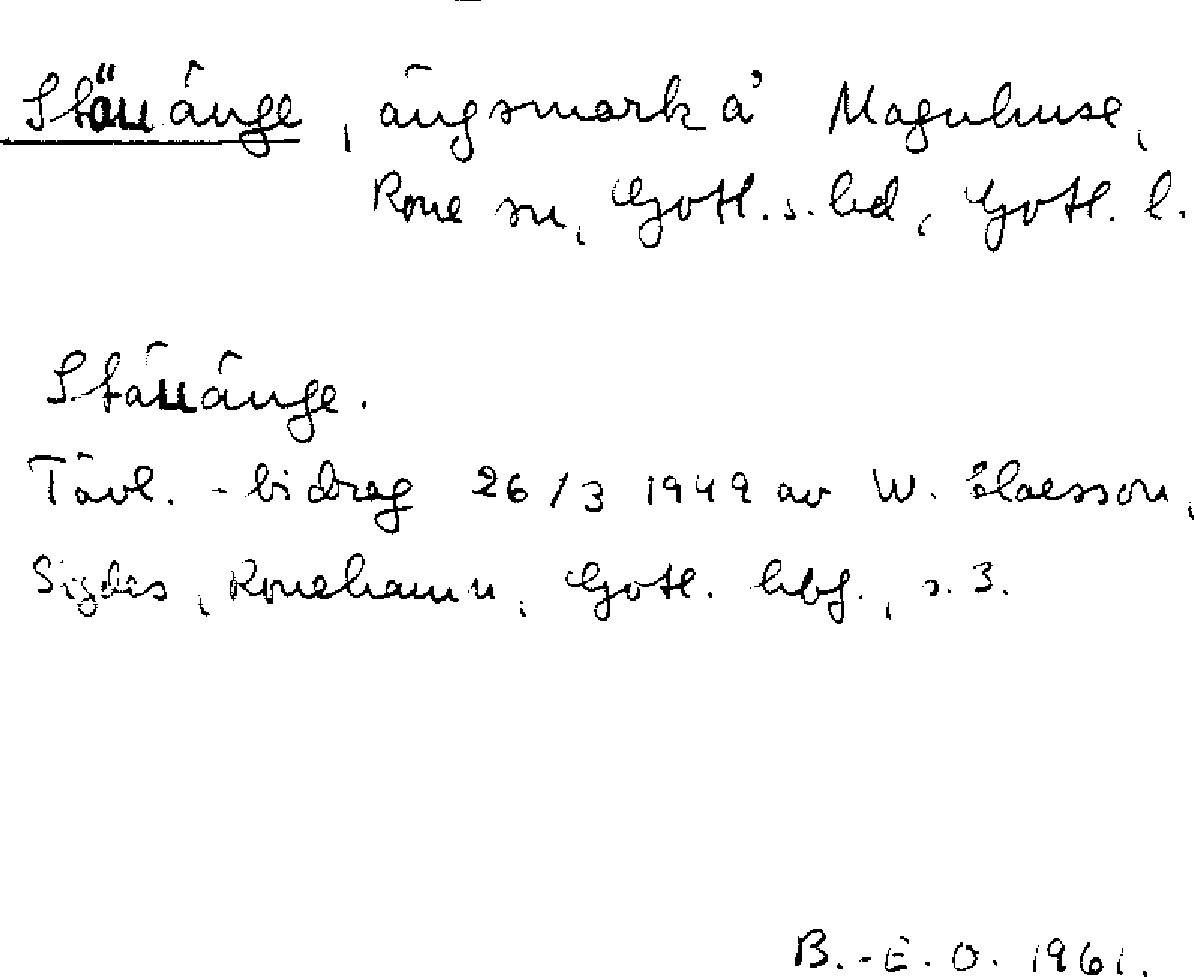 Stänänge, ängsmark å Magnhuse,
Rone sn, Gotl. s. hd, Gotl. l.
Stänänge.
Tävl.-bidrag 26/3 1949 av W. Claesson,
Sigdes, Ronehamn, Gotl. hbf., s. 3.
B.-E. O. 1961.